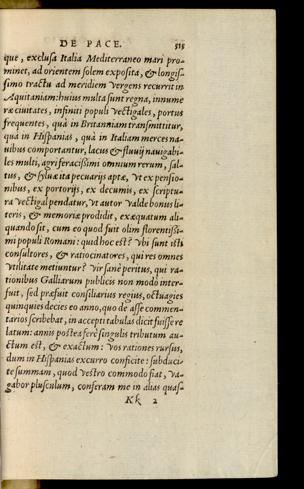 DE PACE. 515
que, exclusa Italia Mediterraneo mari pro-
minet, ad orientem solem exposita, & longis-
simo tractu ad meridiem vergens recurrit in
Aquitaniam: huius multa sunt regna, innume
ræ ciuitates, infiniti populi vectigales, portus
frequentes, quà in Britanniam transmittitur,
quà in Hispanias, quà in Italiam merces na-
uibus comportantur, lacus & fluuij nauigabi-
les multi, agri feracissimi omnium rerum, sal-
tus, & syluæ ita pecuarijs aptæ, vt ex pensio-
nibus, ex portorijs, ex decumis, ex scriptu-
ra vectigal pendatur, vt autor valde bonus li-
teris, & memoriæ prodidit, exæquatum ali-
quando sit, cum eo quod fuit olim florentissi-
mi populi Romani: quid hoc est? vbi sunt isti
consultores, & ratiocinatores, qui res omnes
vtilitate metiuntur? vir sanè peritus, qui ra-
tionibus Galliarum publicis non modò inter-
fuit, sed præfuit consiliarius regius, octuagies
quinquies decies eo anno, quo de asse commen-
tarios scribebat, in accepti tabulas dicit fuisse re
latum: annis postea ferè singulis tributum au-
ctum est, & exactum: vos rationes rursus,
dum in Hispanias excurro conficite: subduci-
te summam, quod vestro commodo fiat, va-
gabor plusculum, conferam me in alias quas-
Kk 2